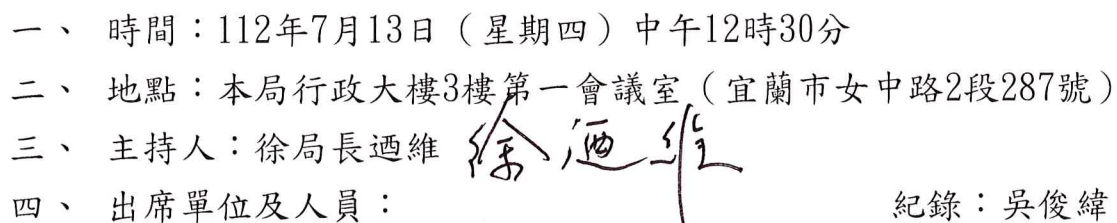 一、 時間：112年7月13日（星期四）中午12時30分
二、 地點：本局行政大樓3樓第一會議室（宜蘭市女中路2段287號）
三、 主持人：徐局長迺維 徐迺維
四、 出席單位及人員： 紀錄：吳俊緯